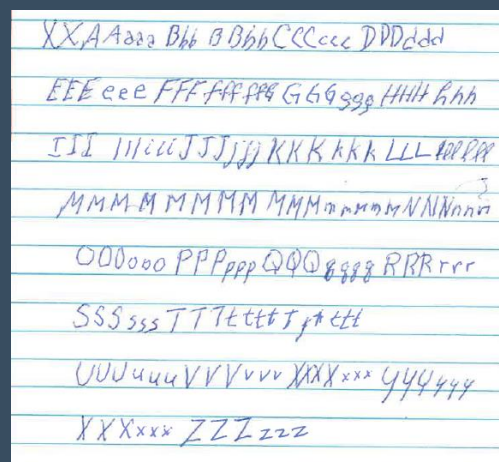 XXAAaaa Bbb BBbbCCCccc DDDddd
EEEeee FFFfffffff GGGggg HHHhhh
III IIIiiiJJJjjj KKKkkk LLLllllll
MMMMMMMMMMMMmmmmmNNNnnn
OOOooo PPPpppQQQqqqq RRRrrr
SSSsssTTTttttTttttt
UUUuuuVVVvvvXXXXxxx yyyyyy
XXXxxx ZZZzzz